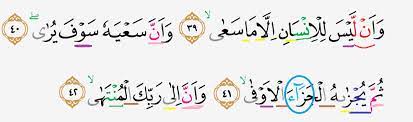 وَاَنْ لَّيْسَ لِلْاِنْسَانِ اِلَّا مَا سَعٰىۙ ٣٩ وَاَنَّ سَعْيَهٗ سَوْفَ يُرٰىۖ ٤٠
ثُمَّ يُجْزٰىهُ الْجَزَاۤءَ الْاَوْفٰىۙ ٤١ وَاَنَّ اِلٰى رَبِّكَ الْمُنْتَهٰىۙ ٤٢